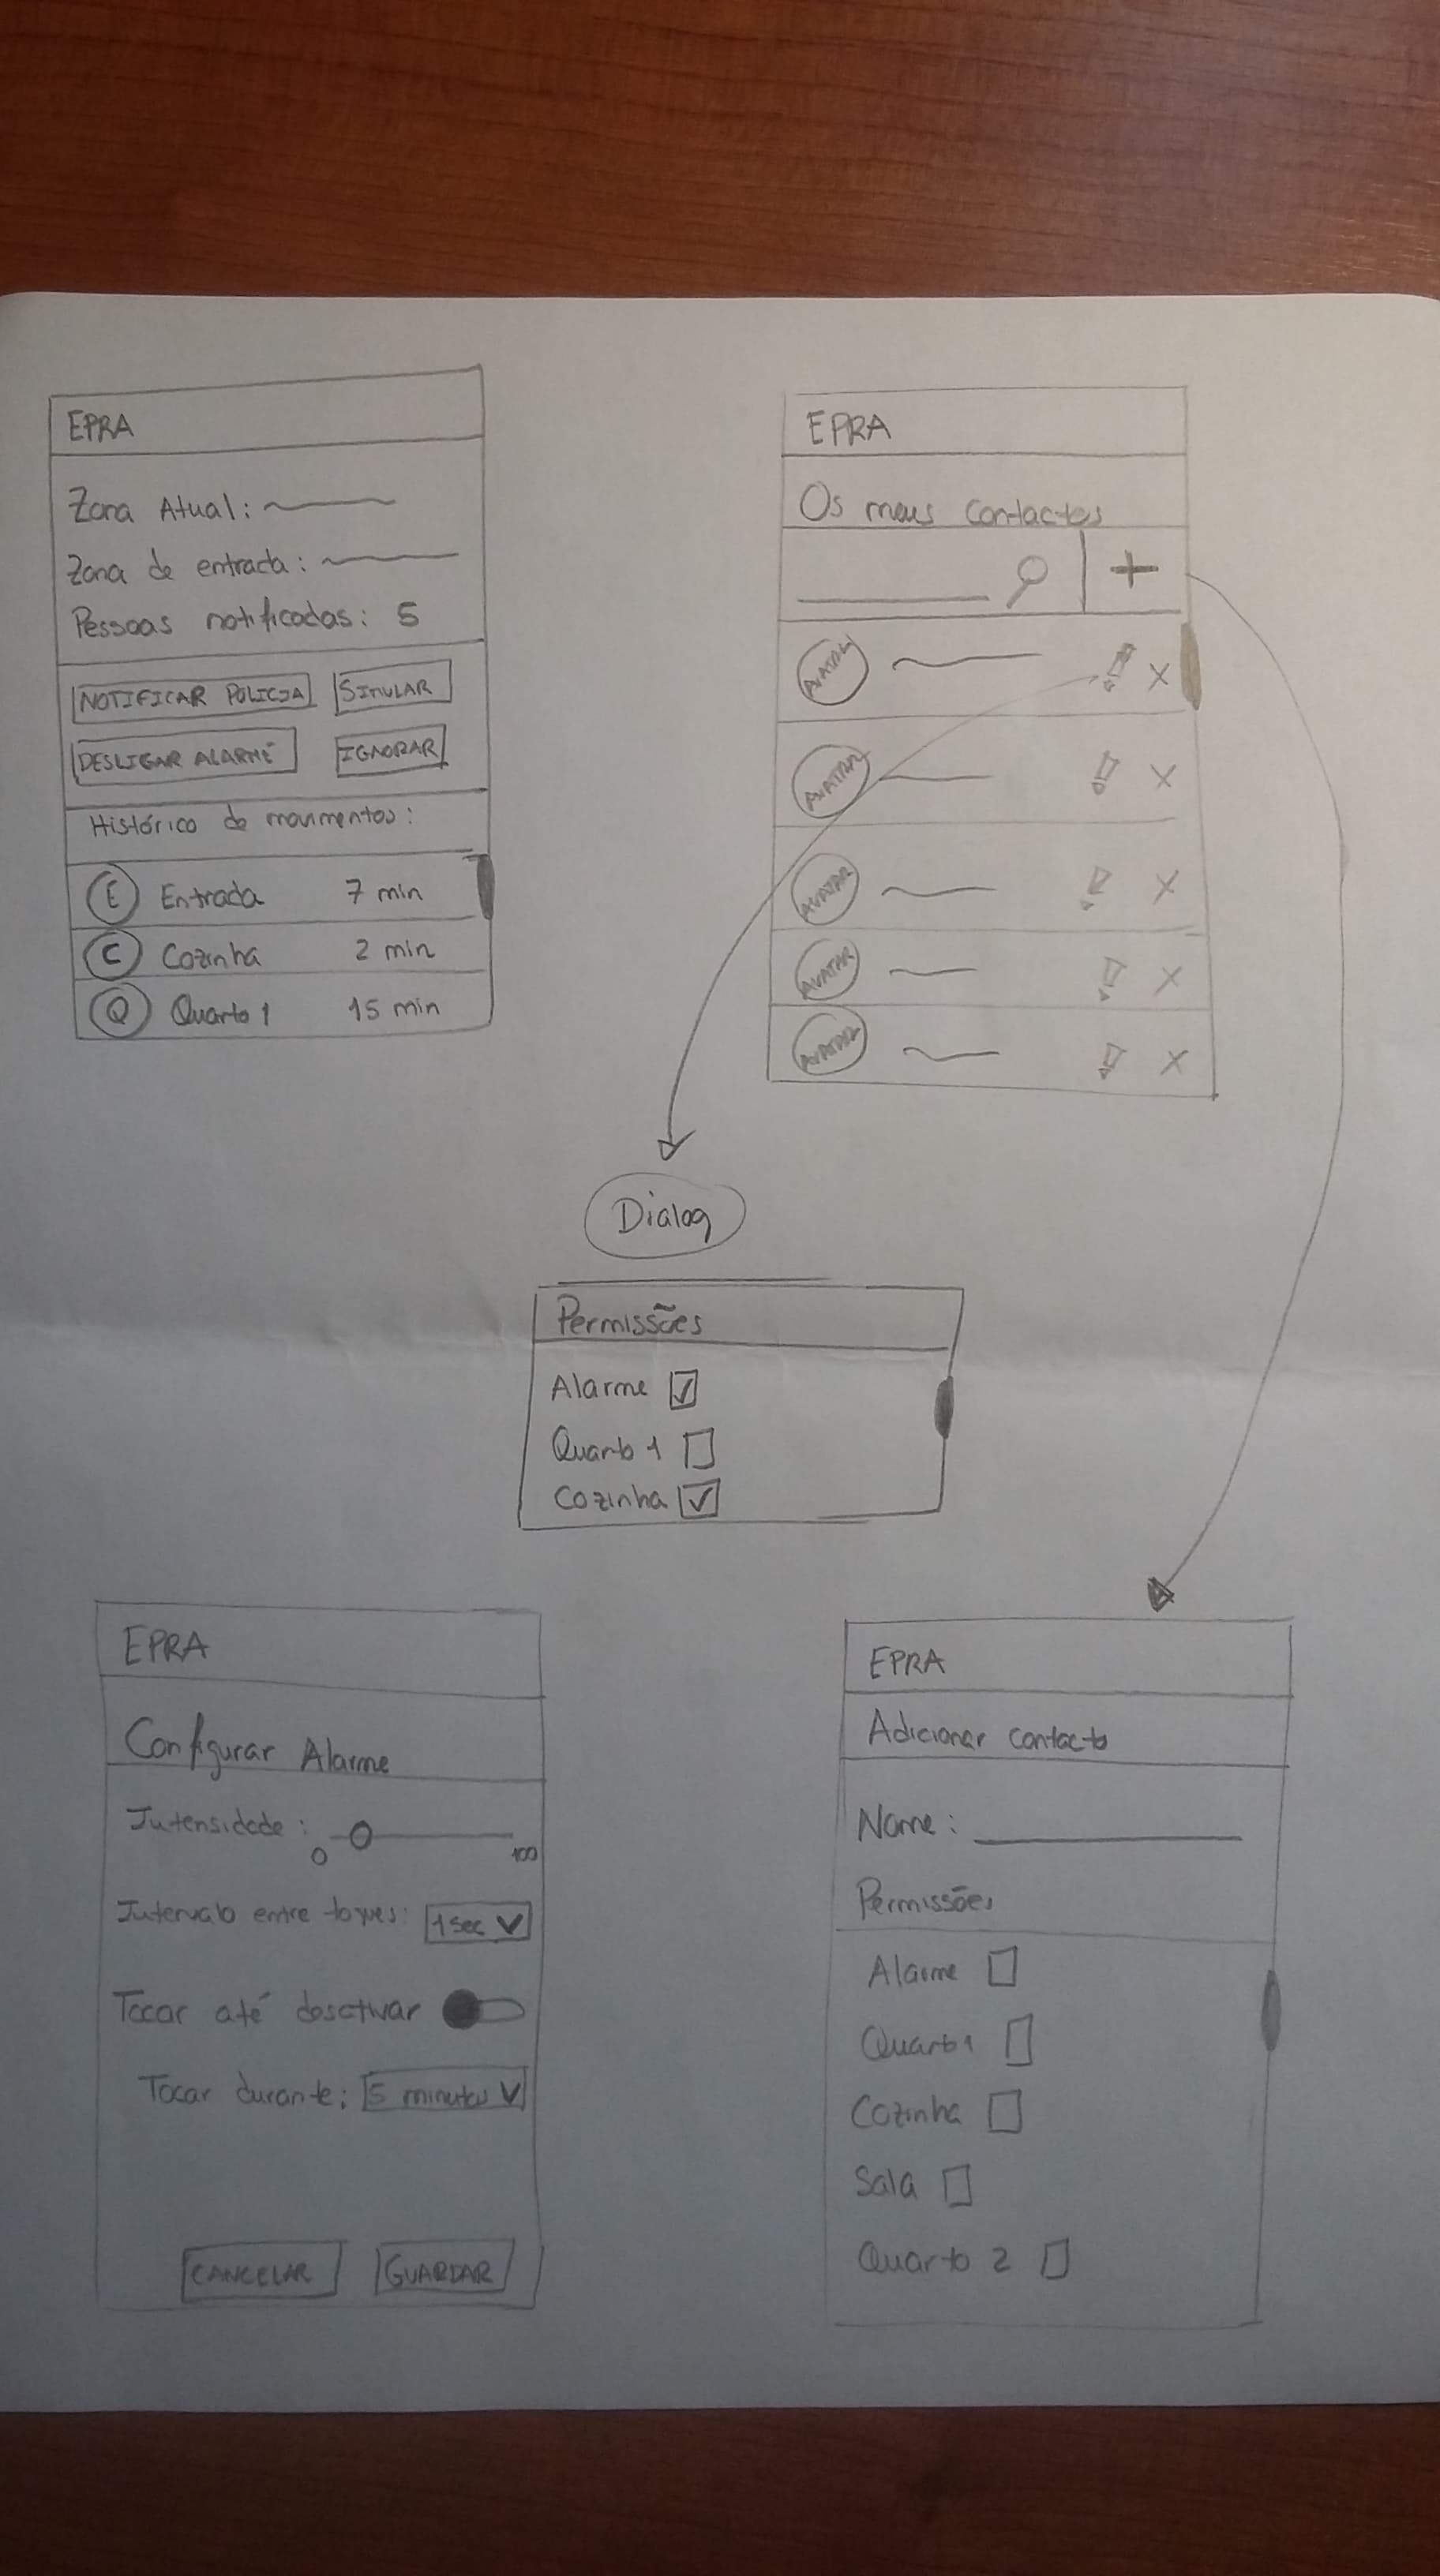 EPRA
Zona Atual:
Zona de entrada:
Pessoas notificadas: 5
NOTIFICAR POLICIA
SIMULAR
DESLIGAR ALARME
IGNORAR
Histórico de movimentos:
E Entrada 7 min
C Cozinha 2 min
Q Quarto 1 15 min
EPRA
Os meus contactos
+
AVATAR X
AVATAR X
AVATAR X
AVATAR X
AVATAR X
Dialog
Permissões
Alarme
Quarto 1
Cozinha
EPRA
Configurar Alarme
Intensidade:
0 100
Intervalo entre toques: 1 sec
Tocar até desativar
Tocar durante: 5 minutos
CANCELAR GUARDAR
EPRA
Adicionar contacto
Nome:
Permissões
Alarme
Quarto 1
Cozinha
Sala
Quarto 2